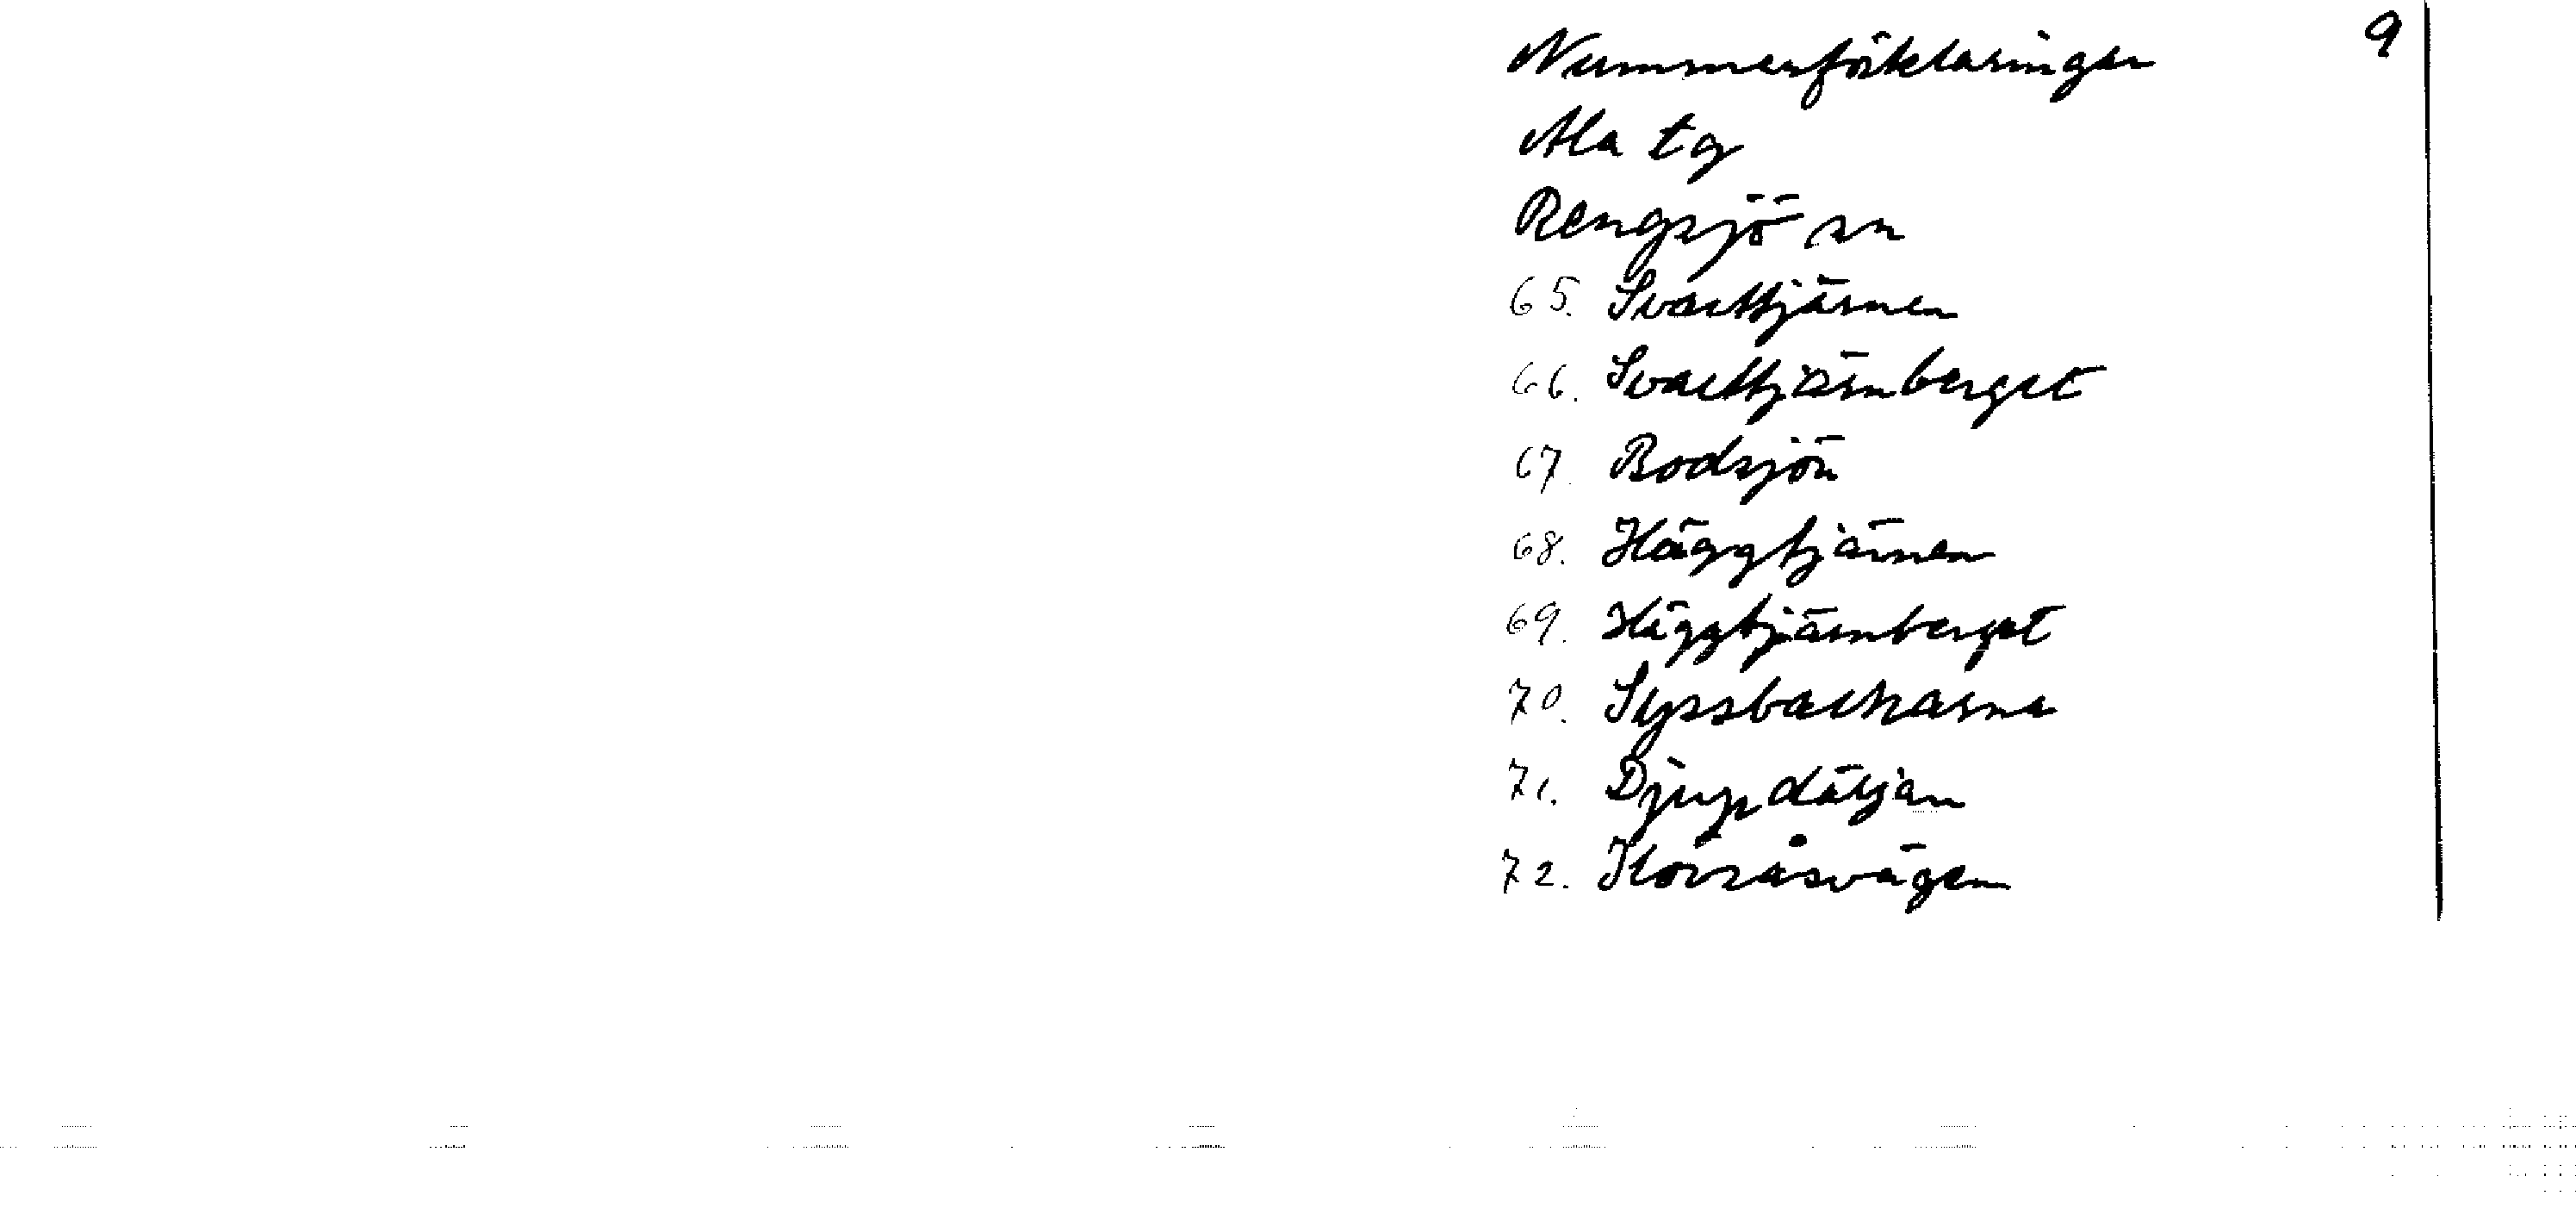 Nummerförklaringar
9
Ala tg
Rengsjö sn
65. Svarttjärnen
66. Svarttjärnberget
67. Bodsjön
68. Häggtjärnen
69. Häggtjärnberget
70. Syssbackarna
71. Djupdäljan
72. Korsåsvägen